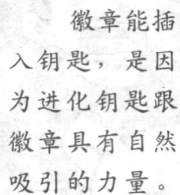 徽章能插
入钥匙，是因
为进化钥匙跟
徽章具有自然
吸引的力量。